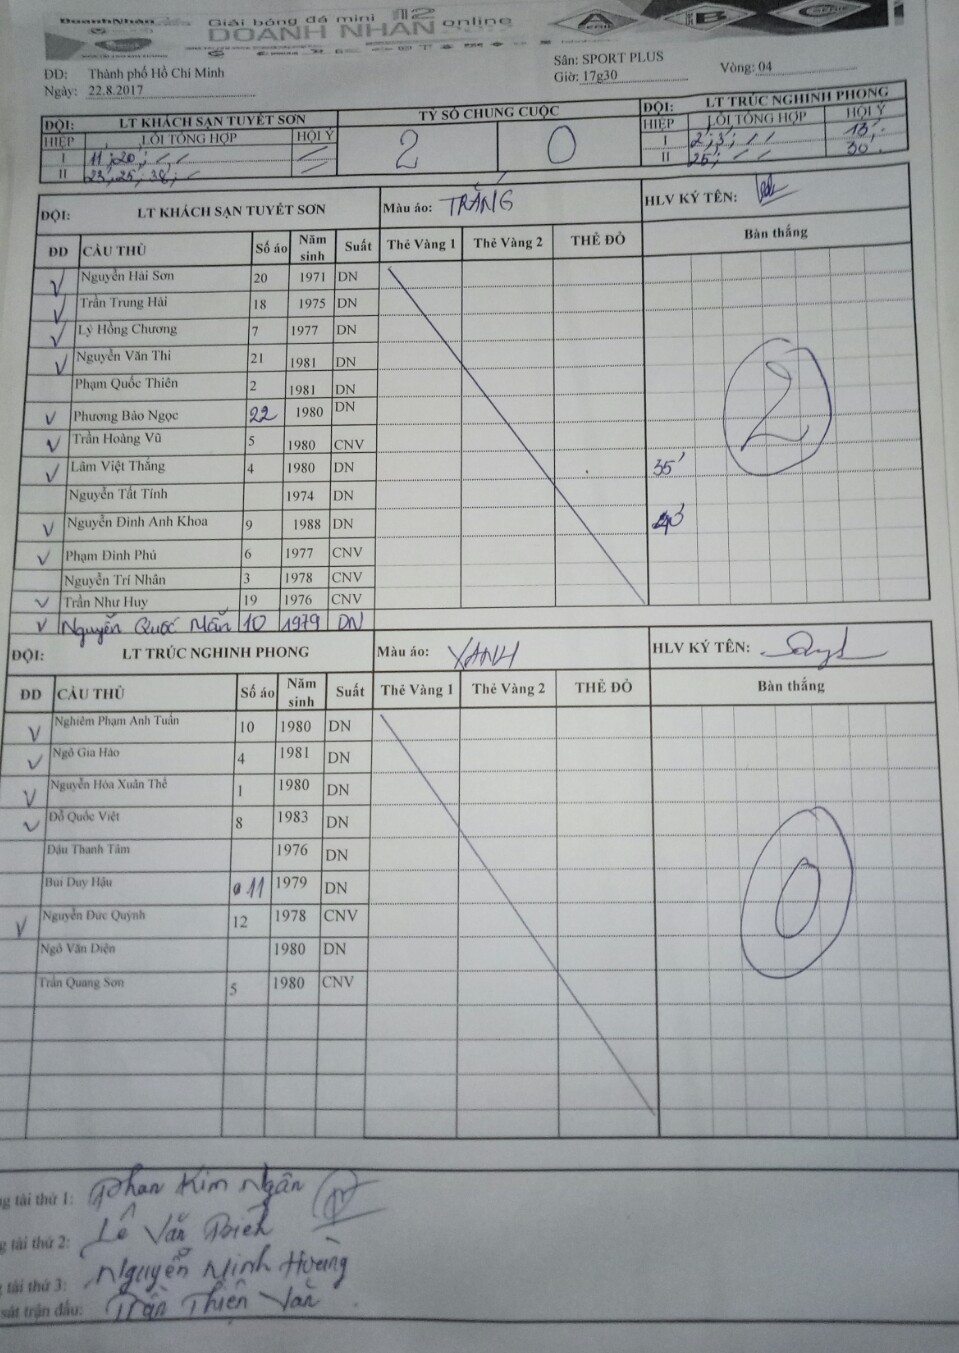 DoanhNhân
Giải bóng đá mini 12
DOANH NHÂN online
A
B
ĐĐ: Thành phố Hồ Chí Minh
Ngày: 22.8.2017
Sân: SPORT PLUS
Giờ: 17g30
Vòng: 04
ĐỘI: LT KHÁCH SẠN TUYẾT SƠN
TỶ SỐ CHUNG CUỘC
ĐỘI: LT TRÚC NGHINH PHONG
HIỆP LỖI TỔNG HỢP HỘI Ý
2 0
HIỆP LỖI TỔNG HỢP HỘI Ý
I 11', 20',
I 2', 3', 13'
II 23', 25', 38',
II 25', 30'
ĐỘI: LT KHÁCH SẠN TUYẾT SƠN Màu áo: TRẮNG HLV KÝ TÊN:
ĐD CẦU THỦ Số áo Năm sinh Suất Thẻ Vàng 1 Thẻ Vàng 2 THẺ ĐỎ Bàn thắng
V Nguyễn Hải Sơn 20 1971 DN
V Trần Trung Hải 18 1975 DN
V Lý Hồng Chương 7 1977 DN
V Nguyễn Văn Thi 21 1981 DN
Phạm Quốc Thiên 2 1981 DN
V Phương Bảo Ngọc 22 1980 DN
2
V Trần Hoàng Vũ 5 1980 CNV
V Lâm Việt Thắng 4 1980 DN 35'
Nguyễn Tất Tính 1974 DN
V Nguyễn Đình Anh Khoa 9 1988 DN
V Phạm Đình Phú 6 1977 CNV
Nguyễn Trí Nhân 3 1978 CNV
V Trần Như Huy 19 1976 CNV
V Nguyễn Quốc Mẫn 10 1979 DN
ĐỘI: LT TRÚC NGHINH PHONG Màu áo: XANH HLV KÝ TÊN:
ĐD CẦU THỦ Số áo Năm sinh Suất Thẻ Vàng 1 Thẻ Vàng 2 THẺ ĐỎ Bàn thắng
V Nghiêm Phạm Anh Tuấn 10 1980 DN
V Ngô Gia Hào 4 1981 DN
V Nguyễn Hòa Xuân Thế 1 1980 DN
V Đỗ Quốc Việt 8 1983 DN
Đậu Thanh Tâm 1976 DN
Bùi Duy Hậu 11 1979 DN
0
V Nguyễn Đức Quỳnh 12 1978 CNV
Ngô Văn Diện 1980 DN
Trần Quang Sơn 5 1980 CNV
ng tài thứ 1: Phan Kim Ngân
g tài thứ 2: Lê Văn
tài thứ 3: Nguyễn Minh Hoàng
sát trận đấu: Trần Thiện Văn